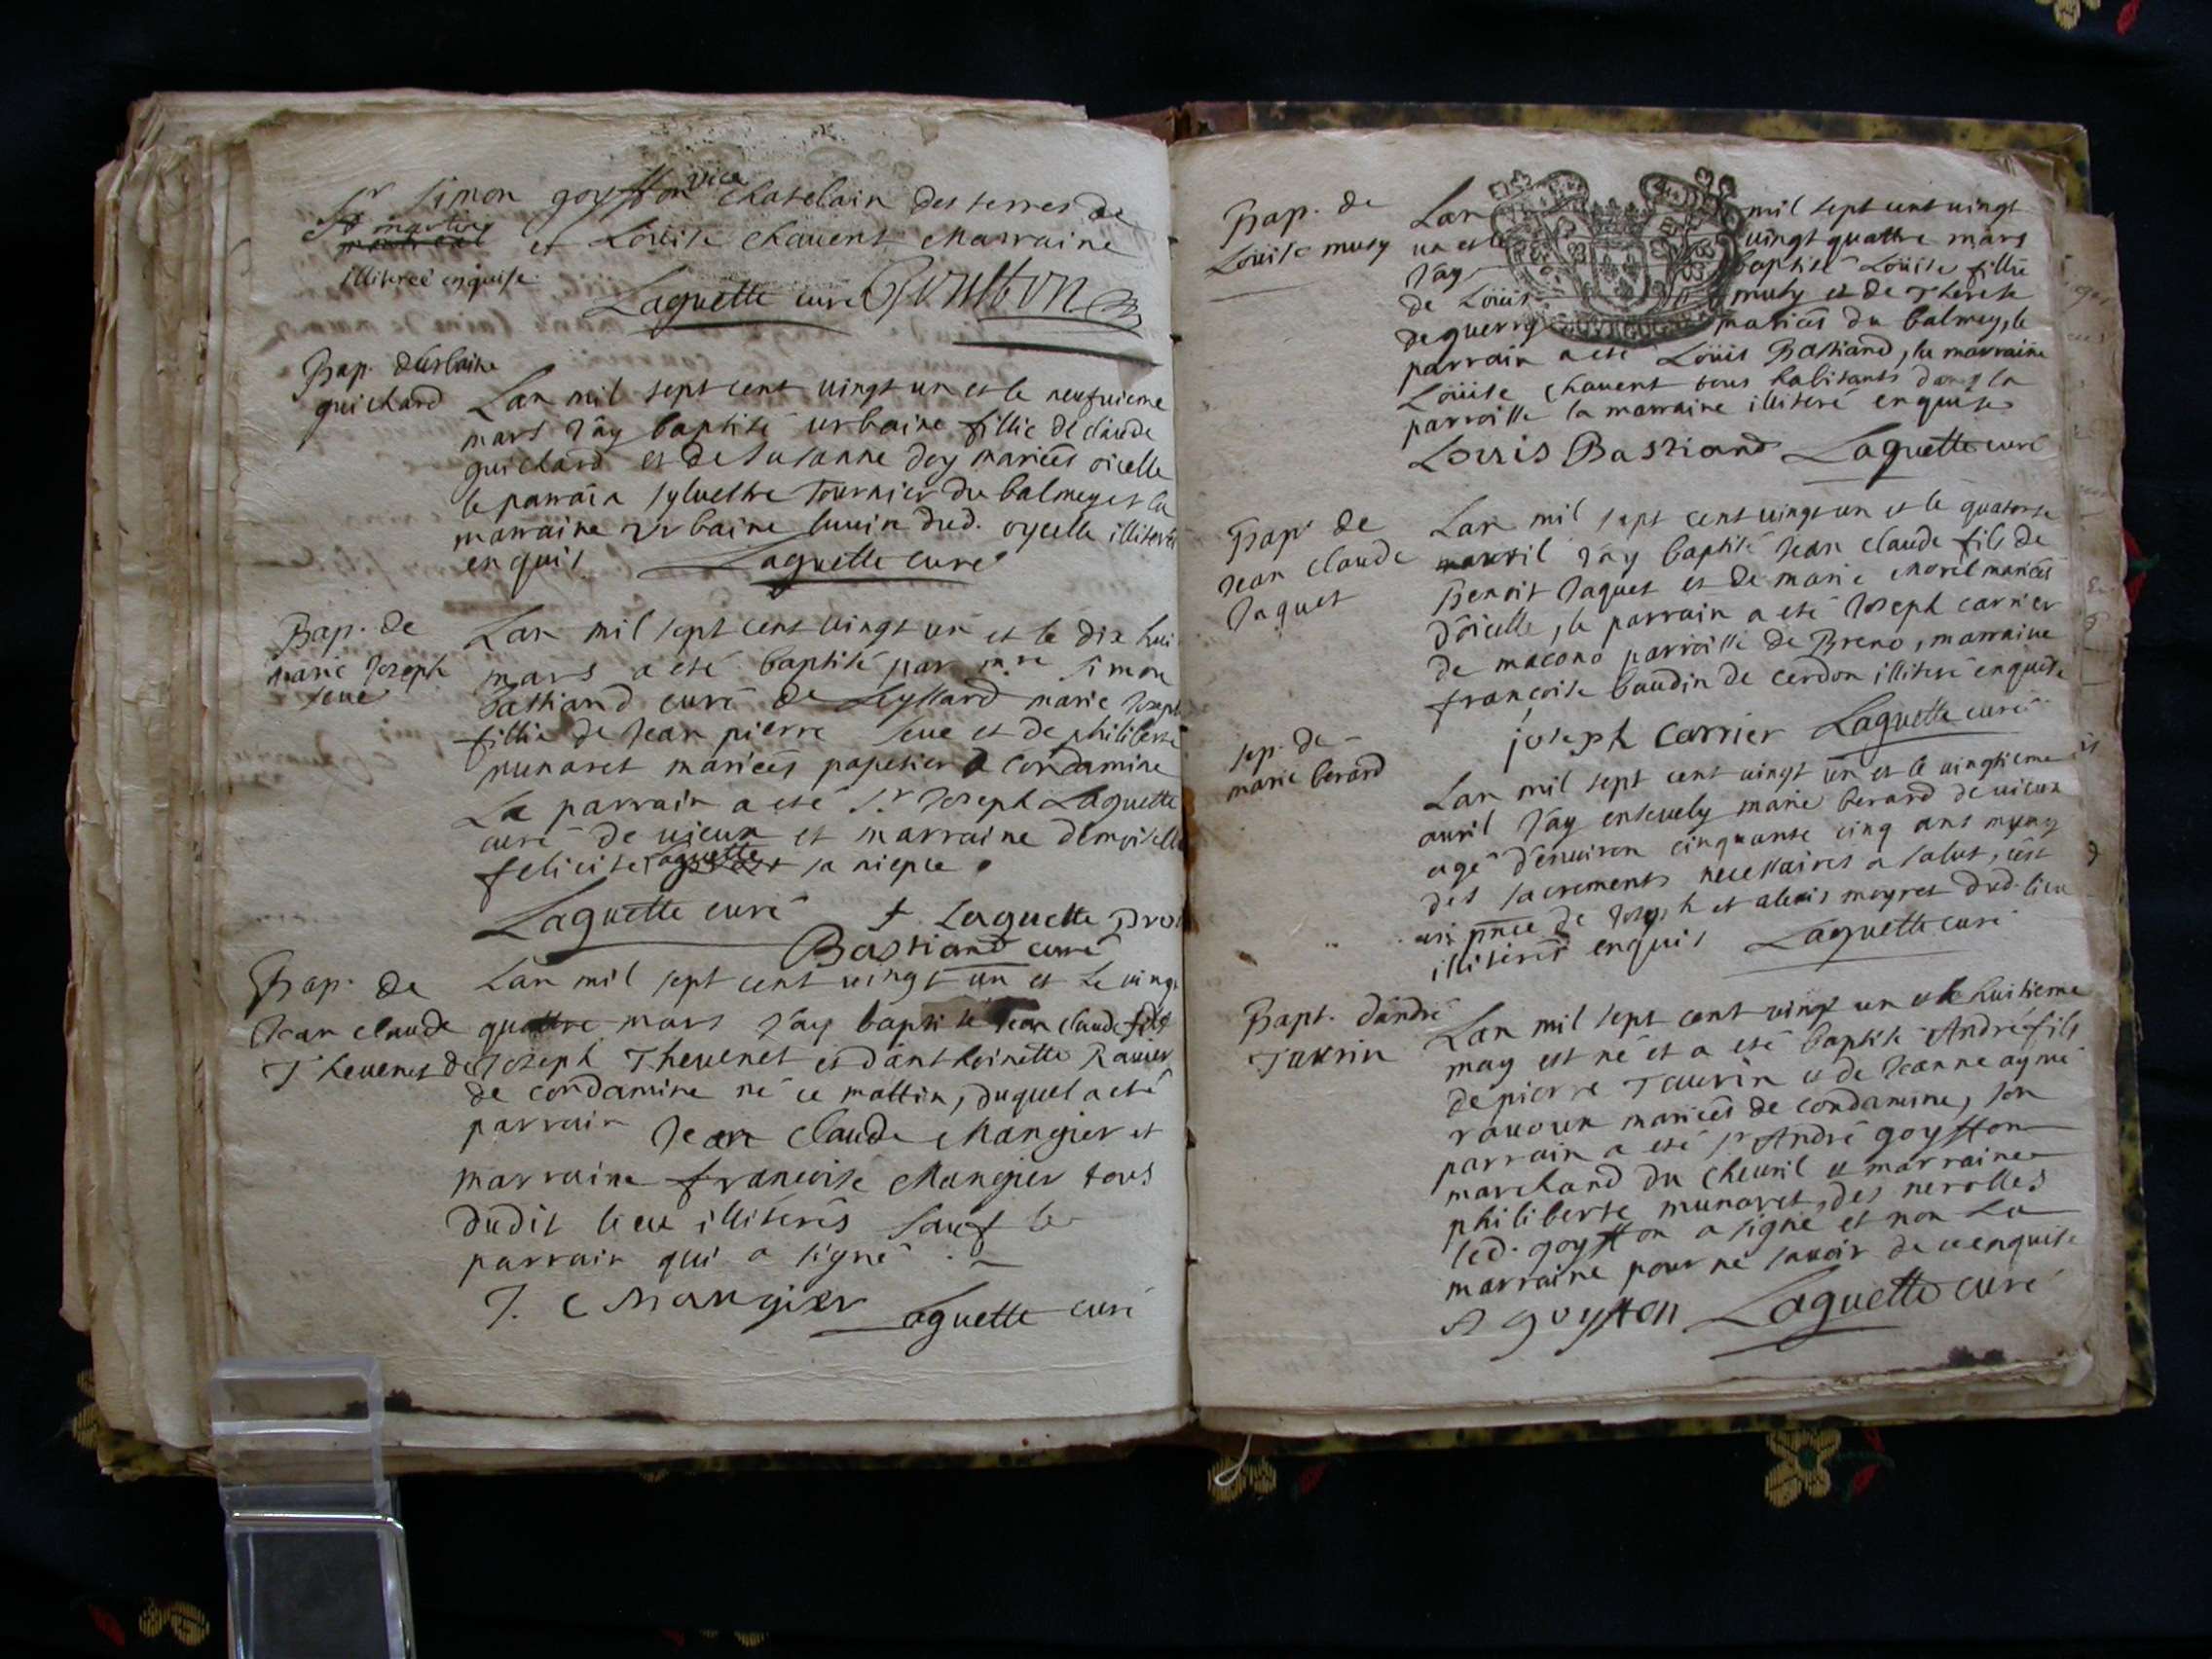 Sr Simon goyffon vice chatelain des terres de
St martin et Loüise chauent Marraine
illitereé enquise
Laguette curé Goiffon
Bap. durbaine
guichard
Lan mil sept cent uingt un et le neufuieme
mars J'ay baptisé urbaine fillie de claude
guichard et de Susanne Doy mariées oicelle
le parrain syluestre Tournier du balmey et la
marraine Urbaine dud. oycelle illiterés
enquis Laguette curé
Bap. de
marie Joseph
seue
Lan mil sept cent uingt un et le dix hui
mars a eté baptisé par mre Simon
Bastiand curé de Leyssard marie Joseph
fillie de Jean pierre Seue et de philiberte
munaret mariées papetier a condamine
Le parrain a eté Sr Joseph Laguette
curé de uieux et marraine demoiselle
felicite Laguette sa niepce
Laguette curé J. Laguette
Bastiand curé
Bap. de
Jean claude
Theuenet
Lan mil sept cent uingt un et le uingt
quattre mars J'ay baptisé Jean claude fils
de Joseph Theuenet et danthoinette Rauier
de condamine né ce mattin, duquel a eté
parrain Jean Claude Mangier et
marraine françoise Mangier tous
dudit lieu illiterés sauf le
parrain qui a signé
J. C Mangier Laguette curé
Bap. de
Loüise musy
Lan mil sept cent uingt
un et le uingt quattre mars
J'ay baptisé Loüise fillie
de Loüis musy et de Therese
deguerry mariées du balmey, le
parrain a eté Loüis Bastiand, la marraine
Loüise chauent tous habitants dans la
parroisse la marraine illiteré enquise
Louis Bastiand Laguette curé
Bap. de
Jean claude
Jaquet
Lan mil sept cent uingt un et le quatorse
auril J'ay baptisé Jean claude fils de
Benoit Jaquet et de marie Morel mariées
d'oicelle, le parrain a eté Joseph carrier
de macono parroisse de Breno, marraine
françoise baudin de cerdon illiteré enquise
joseph carrier Laguette curé
sep. de
marie berard
Lan mil sept cent uingt un et le uingtieme
auril J'ay enseuely marie berard de uieux
agé d'enuiron cinquante cinq ans muny
des sacrements necessaires a salut, c'est
en pnce de Joseph et alexis moyret dud. lieu
illiterés enquis Laguette curé
Bapt. d'andré
Taurin
Lan mil sept cent uingt un et le huitieme
may est né et a eté baptisé André fils
de pierre Taurin et de Jeanne aymé
rauoux mariées de condamine, son
parrain a eté sr André goyffon
marchand du cheuril et marraine
philiberte munaret des nerolles
led. goyffon a signé et non La
marraine pour ne sauoir de ce enquise
A goyffon Laguette curé